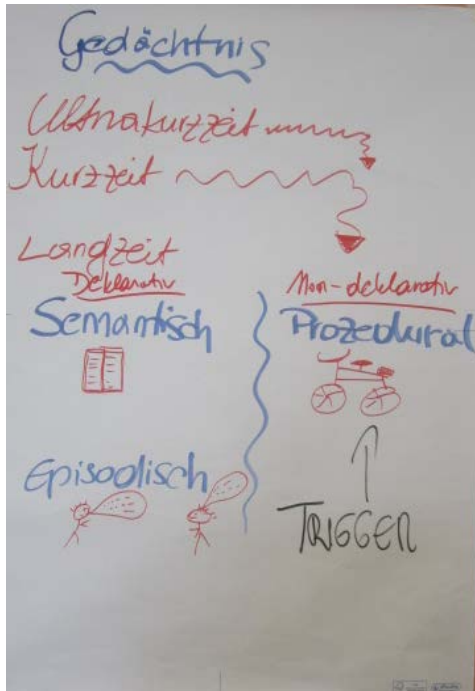 Gedächtnis
Ultrakurzzeit
Kurzzeit
Langzeit
Deklarativ
Semantisch
Episodisch
Non-deklarativ
Prozedural
TRIGGER